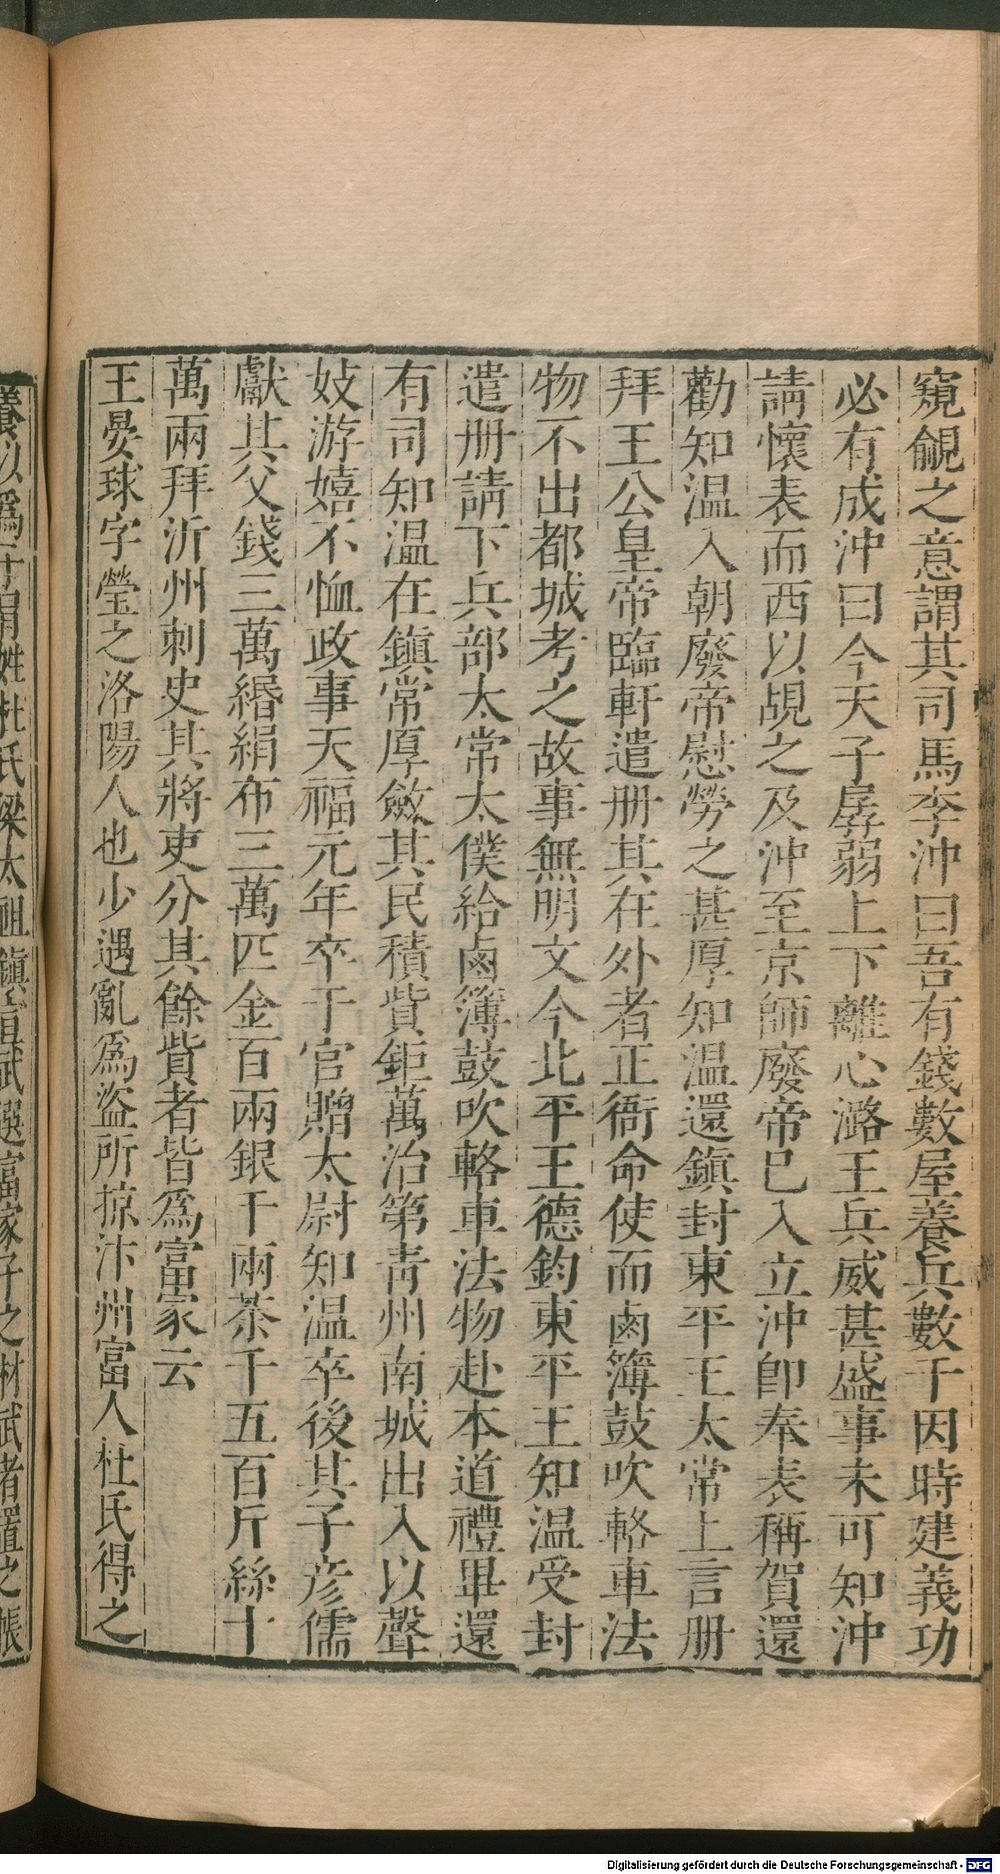 窺覦之意謂其司馬李沖曰吾有錢數屋養兵數千因時建義功
必有成沖曰今天子孱弱上下離心潞王兵威甚盛事未可知沖
請懷表而西以覘之及沖至京師廢帝已入立沖卽奉表稱賀還
勸知温入朝廢帝慰勞之甚厚知温還鎭封東平王太常上言册
拜王公皇帝臨軒遣册其在外者正衙命使而鹵簿鼓吹輅車法
物不出都城考之故事無明文今北平王德鈞東平王知温受封
遣册請下兵部太常太僕給鹵簿鼓吹輅車法物赴本道禮畢還
有司知温在鎭常厚斂其民積貲鉅萬治第靑州南城出入以聲
妓游嬉不恤政事天福元年卒于官贈太尉知温卒後其子彦儒
獻其父錢三萬緡絹布三萬匹金百兩銀千兩茶千五百斤絲十
萬兩拜沂州刺史其將吏分其餘貲者皆爲富家云
王晏球字瑩之洛陽人也少遇亂爲盜所掠汴州富人杜氏得之
養以爲子冒姓杜氏梁太祖鎭宣武選富家子之材武者置之帳
Digitalisierung gefördert durch die Deutsche Forschungsgemeinschaft - DFG